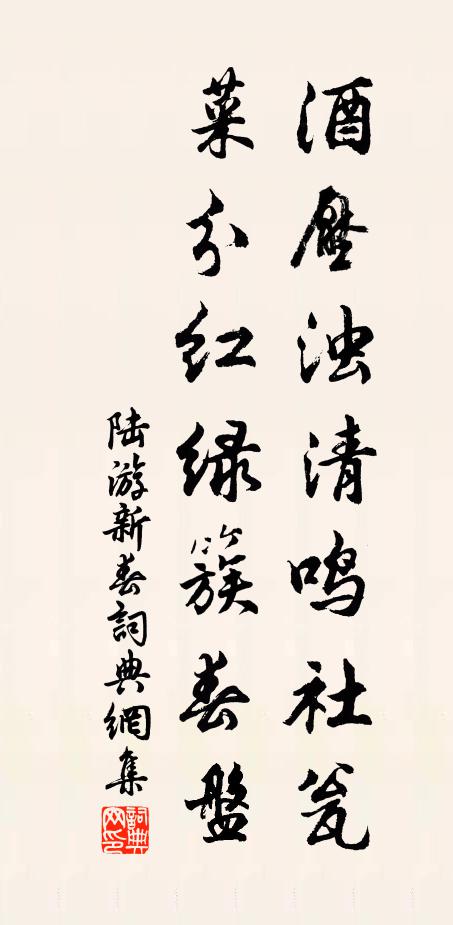 酒压浊清鸣社瓮
菜分红绿簇春盘
陆游新春詞典網集
詞典网印